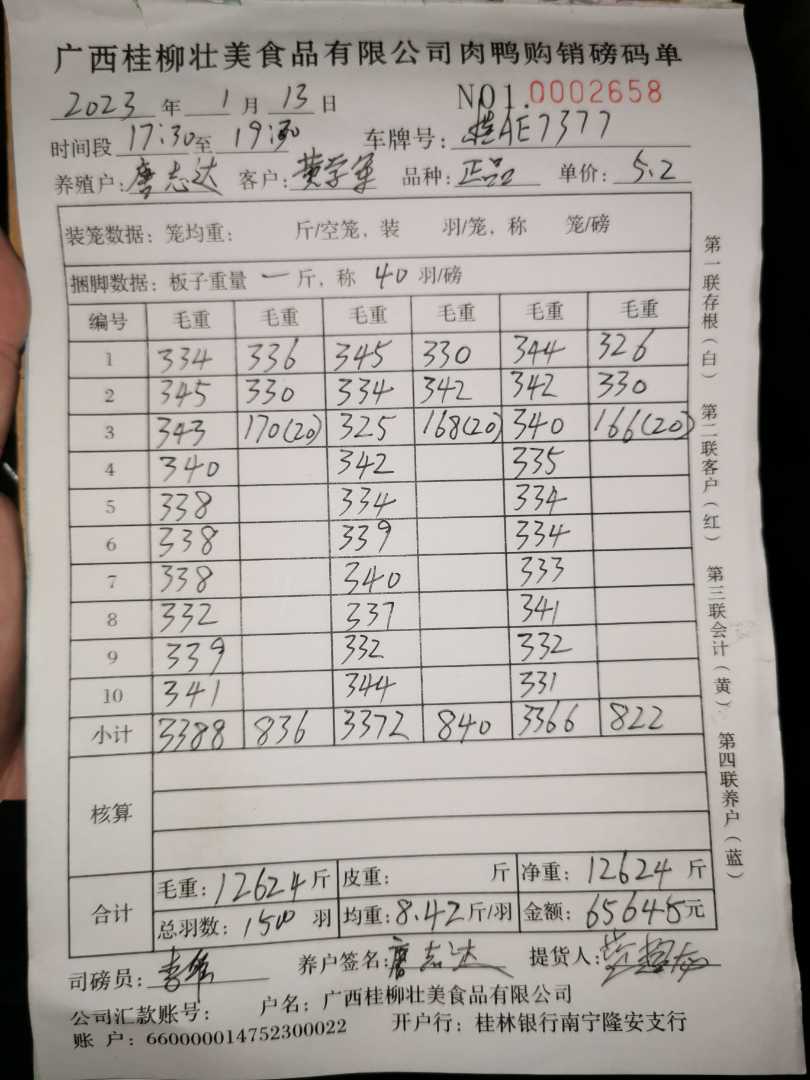 广西桂柳壮美食品有限公司肉鸭购销磅码单
2023 年 1 月 13 日 NO1.0002658
时间段 17:30 至 19:30 车牌号: 桂AE7377
养殖户: 唐志达 客户: 黄学军 品种: 正品 单价: 5.2
装笼数据: 笼均重: 斤/空笼, 装 羽/笼, 称 笼/磅
捆脚数据: 板子重量 一 斤, 称 40 羽/磅
编号 毛重 毛重 毛重 毛重 毛重 毛重
1 334 336 345 330 344 326
2 345 330 334 342 342 330
3 343 170(20) 325 168(20) 340 166(20)
4 340 342 335
5 338 334 334
6 338 339 334
7 338 340 333
8 332 337 341
9 339 332 332
10 341 344 331
小计 3388 836 3372 840 3366 822
核算
合计 毛重: 12624 斤 皮重: 斤 净重: 12624 斤
总羽数: 1500 羽 均重: 8.42 斤/羽 金额: 65645 元
司磅员: 养户签名: 唐志达 提货人:
公司汇款账号: 户名: 广西桂柳壮美食品有限公司
账 户: 660000014752300022 开户行: 桂林银行南宁隆安支行
第一联存根(白) 第二联客户(红) 第三联会计(黄) 第四联养户(蓝)